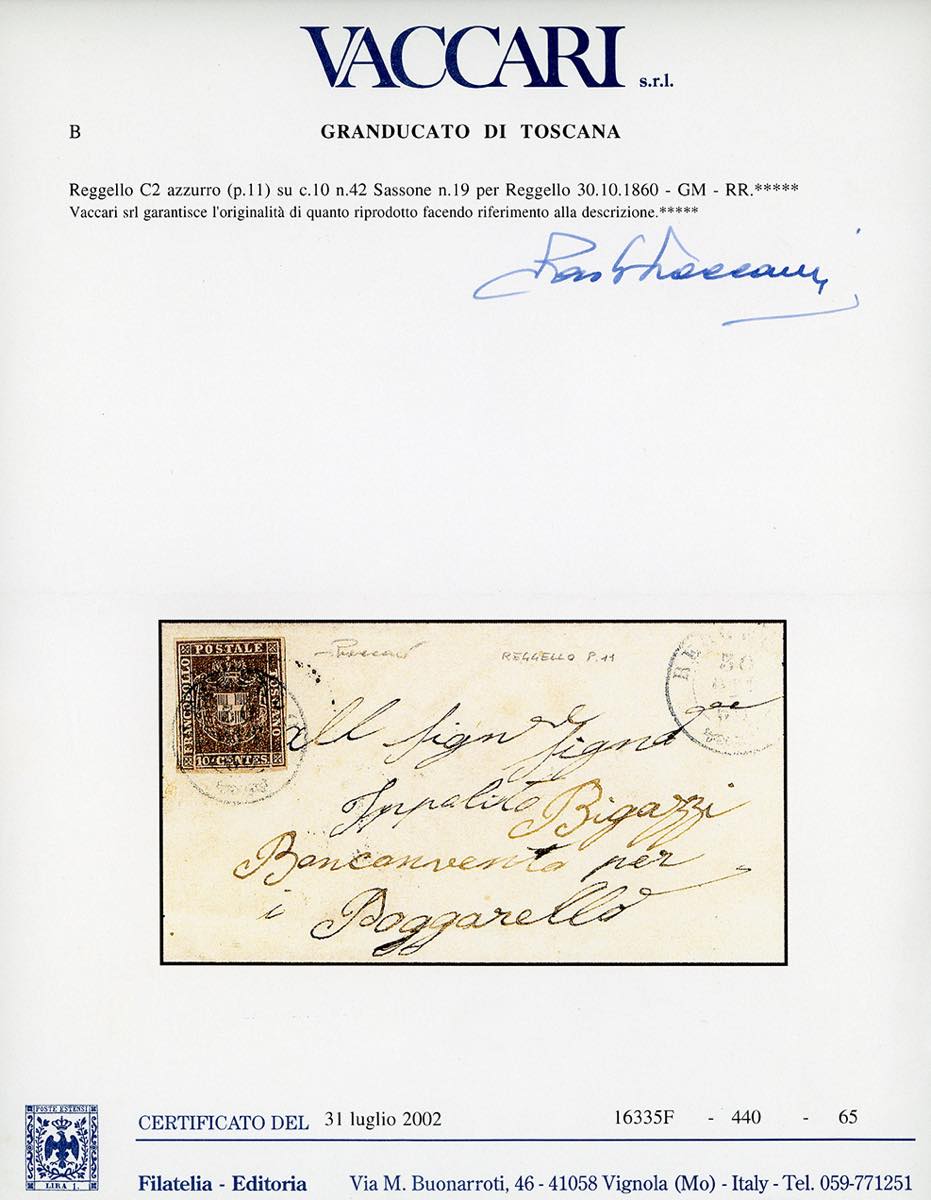 VACCARI s.r.l.
B GRANDUCATO DI TOSCANA
Reggello C2 azzurro (p.11) su c.10 n.42 Sassone n.19 per Reggello 30.10.1860 - GM - RR.*****
Vaccari srl garantisce l'originalità di quanto riprodotto facendo riferimento alla descrizione.*****
REGGELLO P.11
FRANCOBOLLO
POSTALE
TOSCANO
10 CENTES.
50
All Sign Signo
Ippolito Bigazzi
Bonconvento per
i Poggarello
POSTE ESTENSI
LIRA 1.
CERTIFICATO DEL 31 luglio 2002 16335F - 440 - 65
Filatelia - Editoria Via M. Buonarroti, 46 - 41058 Vignola (Mo) - Italy - Tel. 059-771251